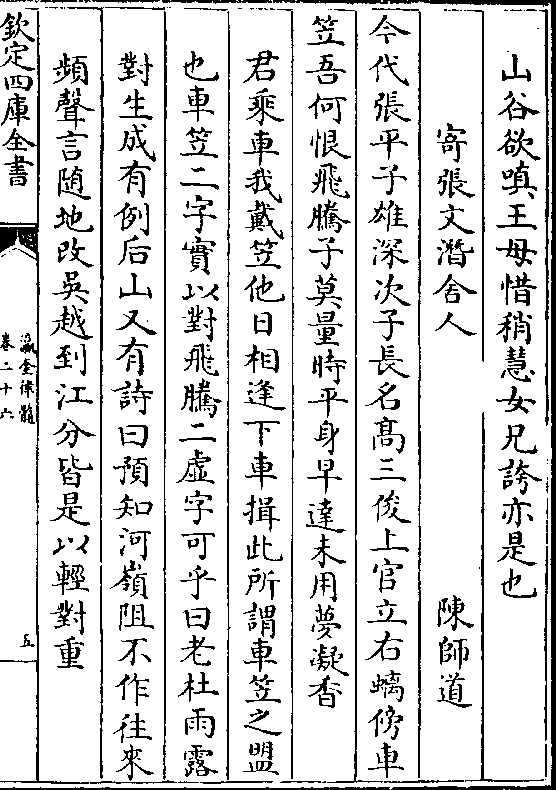 山谷欲嗔王母惜稍慧女兄誇亦是也
寄張文潛舍人 陳師道
今代張平子雄深次子長名髙三俊上官立右螭傍車
笠吾何恨飛騰子莫量時平身早達未用夢凝香
君乘車我戴笠他日相逢下車揖此所謂車笠之盟
也車笠二字實以對飛騰二虚字可乎曰老杜雨露
對生成有例后山又有詩曰預知河嶺阻不作往來
頻聲言随地改吳越到江分皆是以輕對重
欽定四庫全書
瀛奎律髓
卷二十六
五